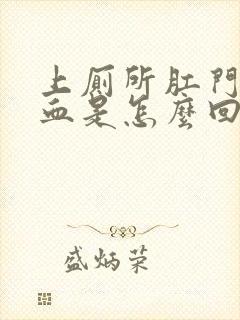 上廁所肛門
血是怎麼回
盛炳荣